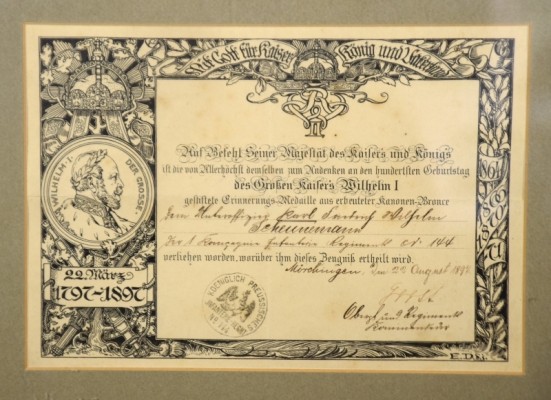 Mit Gott für Kaiser, König und Vaterland
WILHELM·I· DER GROSSE·
II
Auf Befehl Seiner Majestät des Kaisers und Königs
ist die von Allerhöchst demselben zum Andenken an den hundertsten Geburtstag
des Großen Kaisers Wilhelm I
gestiftete Erinnerungs-Medaille aus erbeuteter Kanonen-Bronce
Dem Unteroffizier Karl Wilhelm
Scheunemann
1. Kompagnie Infanterie Regiments No. 144
verliehen worden, worüber ihm dieses Zeugniß ertheilt wird.
Mörchingen, den August 1897
Oberst und Regiments
Kommandeur
22. März
1797-1897
1864
1866
1870
71
KOENIGLICH PREUSSISCHES
E.D.